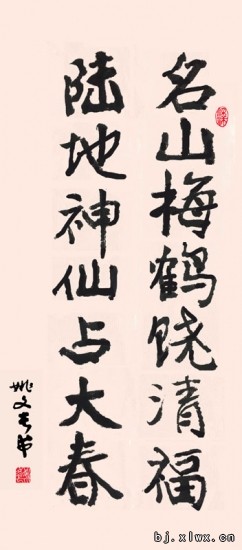 名山梅鹤饶清福
陆地神仙占大春
bj.xlwx.cn